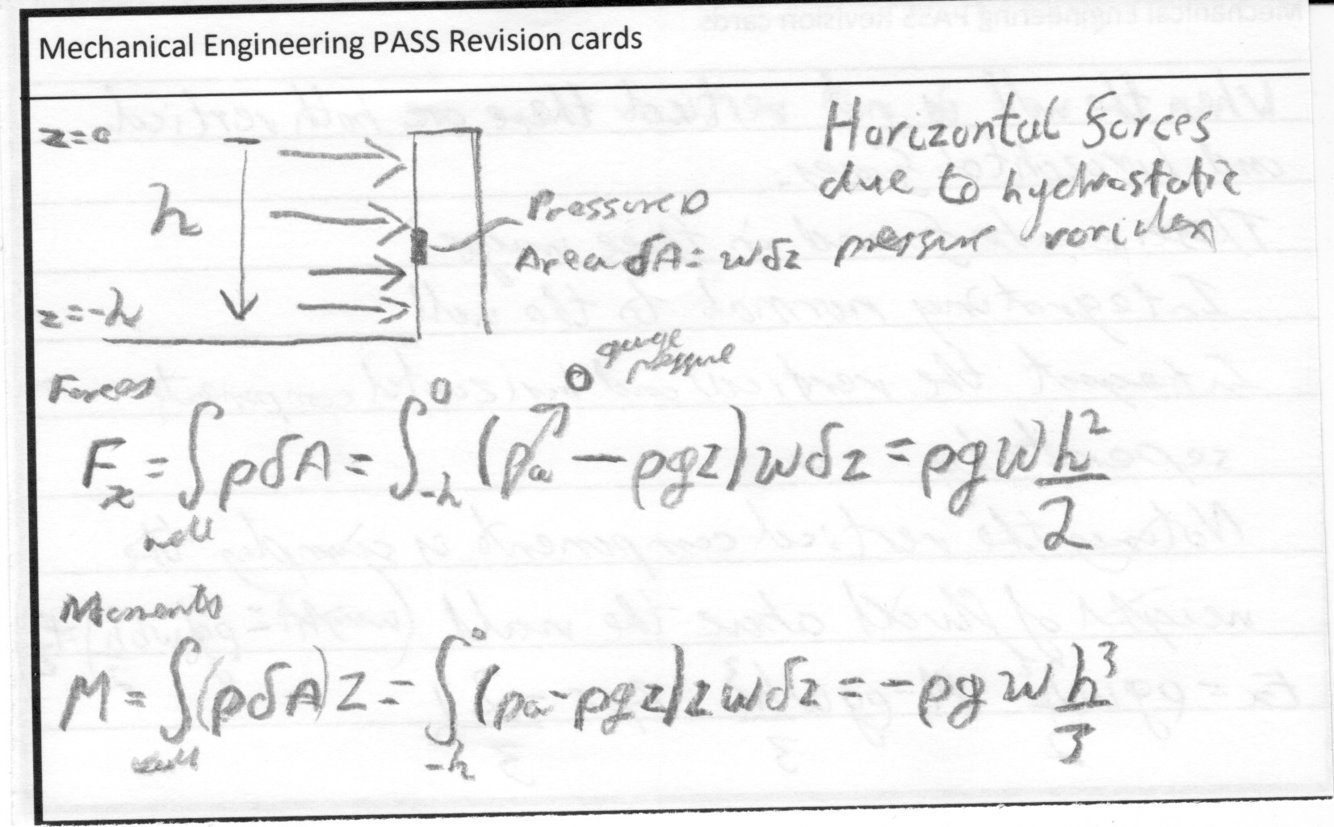 Mechanical Engineering PASS Revision cards
z=0
h
z=-h
Pressure p
Area δA = wδz
Horizontal forces
due to hydrostatic
pressure
Forces
gauge
pressure
0
F_x = ∫_wall pδA = ∫_{-h}^{0} (p_a - ρgz) wδz = ρgw h²/2
Moments
M = ∫_wall (pδA) z = ∫_{-h}^{0} (p_a - ρgz) z wδz = -ρgw h³/3